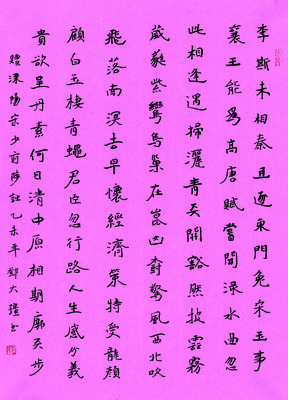 李斯未相秦且逐東門兔宋玉事
襄王能為高唐賦嘗聞淥水曲忽
此相逢遇掃灑青天開豁然披雲霧
葳蕤紫鸞鳥巢在崑山樹驚風西北吹
飛落南溟去早懷經濟策特受龍顏
顧白玉棲青蠅君臣忽行路人生感分義
貴欲呈丹素何日清中原相期廓天步
贈溧陽宋少府陟乙未年鄧大書